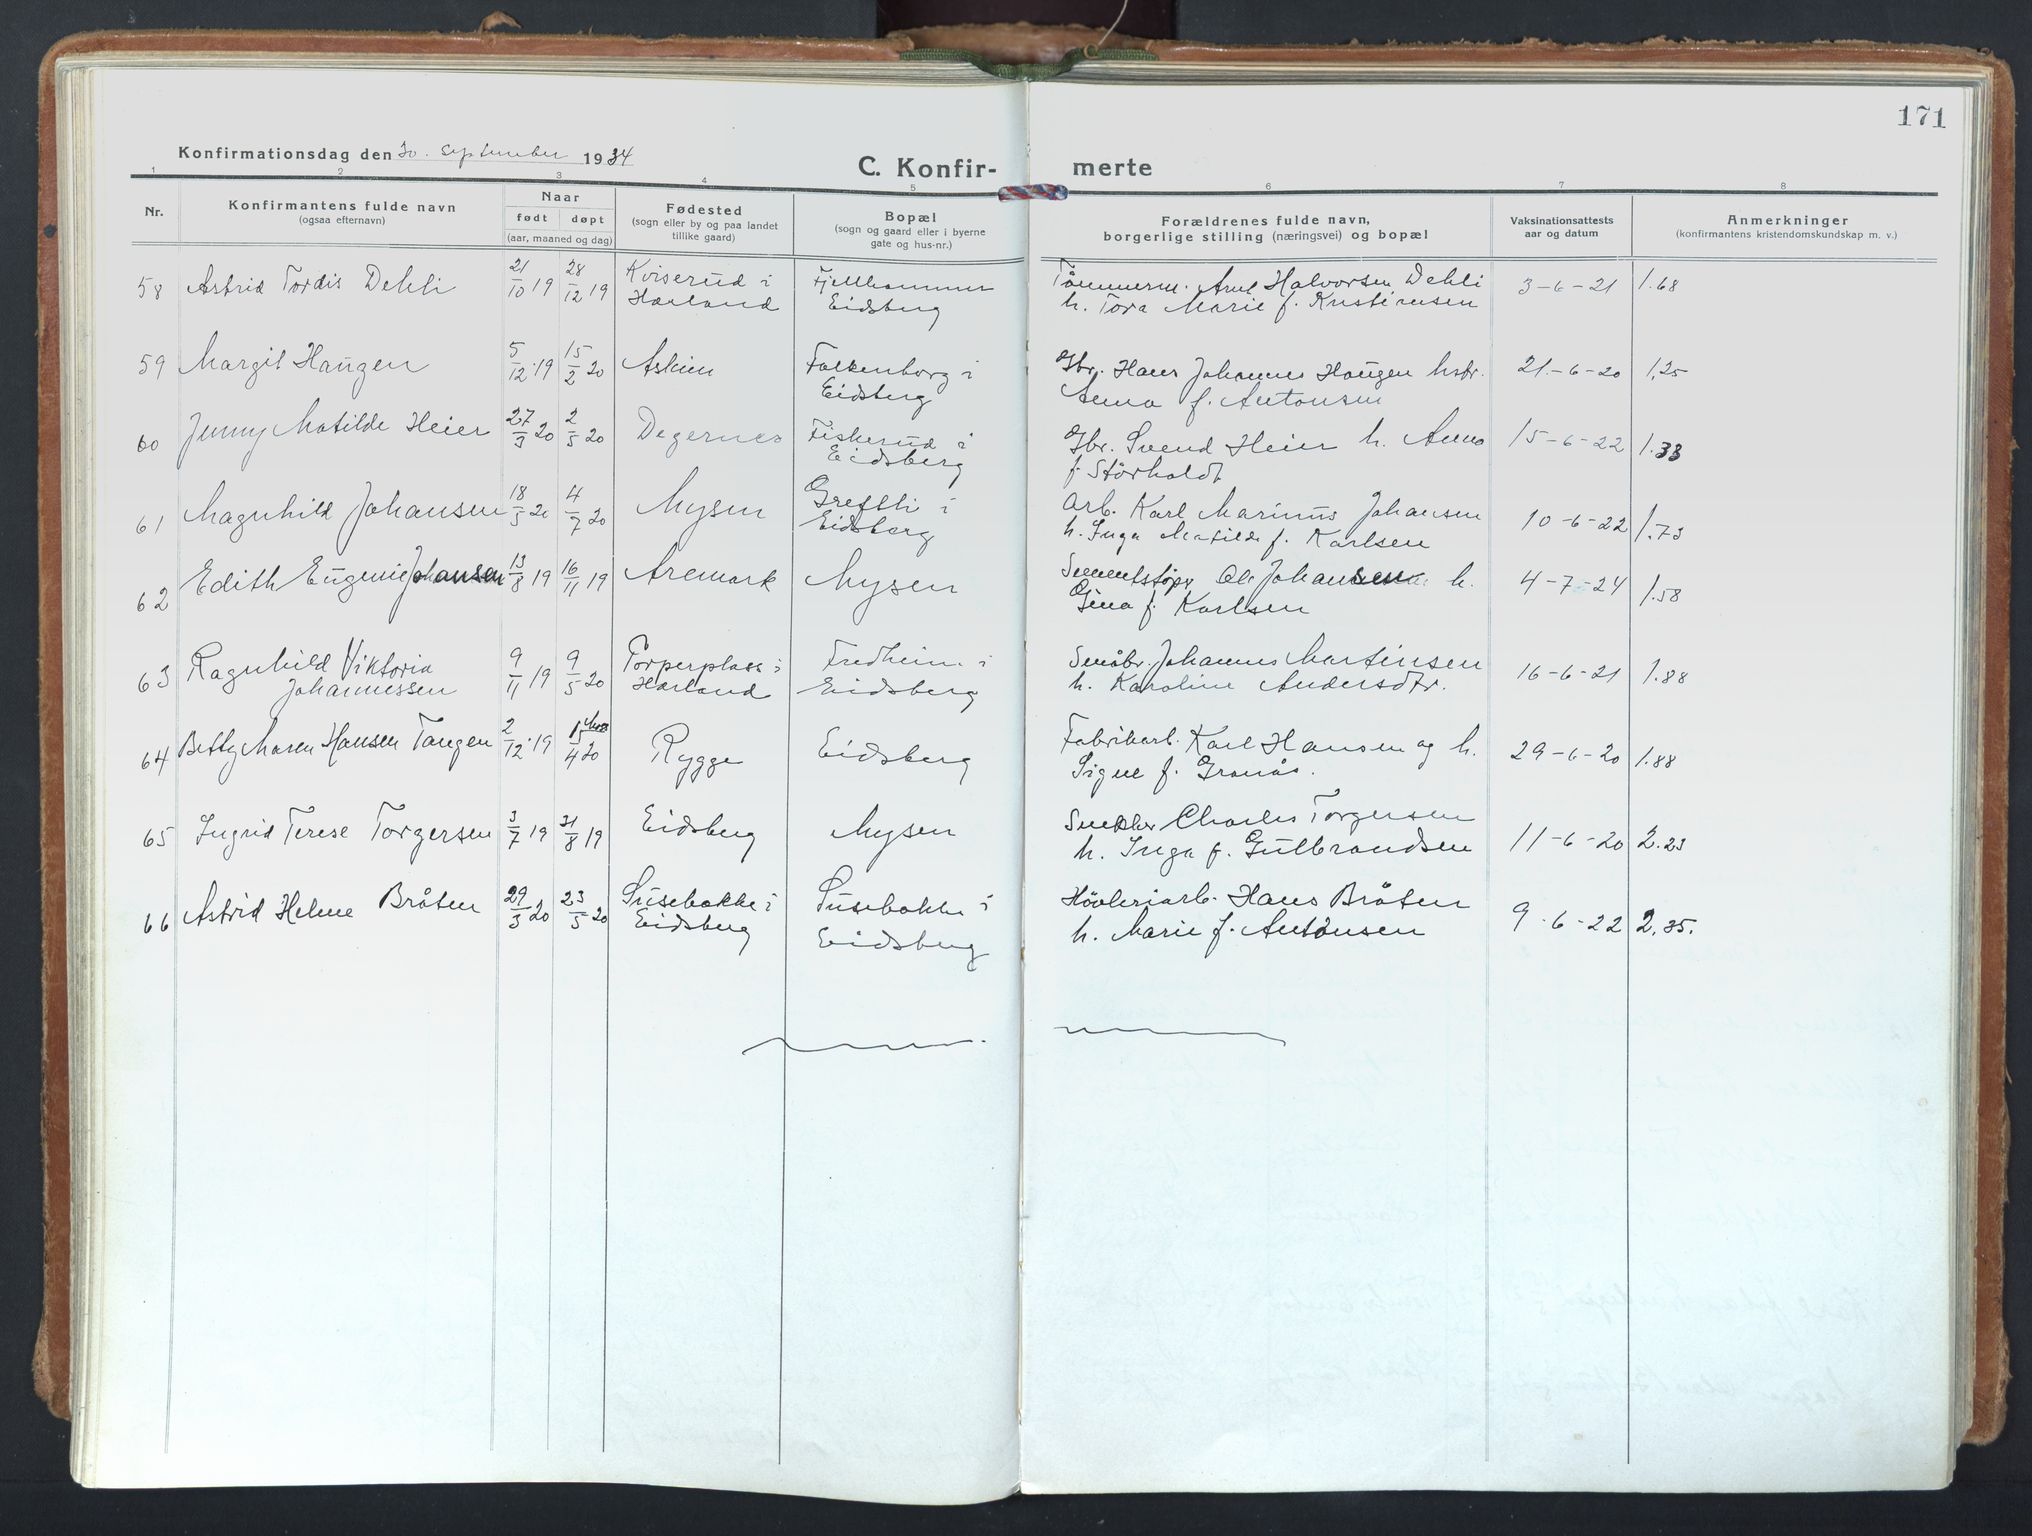 171
Konfirmationsdag den 30. september 1934
C. Konfir- merte
1 2 3 4 5 6 7 8
Nr.
Konfirmantens fulde navn
(ogsaa efternavn)
Naar
født døpt
(aar, maaned og dag)
Fødested
(sogn eller by og paa landet
tillike gaard)
Bopæl
(sogn og gaard eller i byerne
gate og hus-nr.)
Forældrenes fulde navn,
borgerlige stilling (næringsvei) og bopæl
Vaksinationsattests
aar og datum
Anmerkninger
(konfirmantens kristendomskundskap m. v.)
58 Astrid Tordis Dehli 21/10 19 28/12 19 Kviserud i Fjellhammer Tömmerm. Halvorsen Dehli 3-6-21 1.68
Hærland Eidsberg h. Tora Marie f. Kristiansen
59 Margit Haugen 5/12.19 15/2 20 Askim Falkenborg i Gbr. Hans Johannes Haugen hstr. 21.-6-20 1,25
Eidsberg Anna f. Antonsen
60 Jenny Matilde Heier 27/3 20 2/5 20 Degernes Fiskerud i Gbr. Svend Heier h. Anna 15-6-22 1.33
Eidsberg f. Störholdt
61 Magnhild Johansen 18/5 20 4/7 20 Mysen Grefsli i Arb. Karl Marinus Johansen 10-6-22 1.73
Eidsberg h. Inga Matilde f. Karlsen
62 Edith Eugenie Johansen 13/8 19 16/11 19 Aremark Mysen Sementstøper Ole Johansen h. 4-7-24 1.58
Gina f. Karlsen
63 Ragnhild Viktoria 9/11 19 9/5 20 Torperplass i Fredheim i Småbr. Johannes Martinsen 16-6-21 1.88
Johannessen Hærland Eidsberg h. Karoline Andersdtr.
64 Betty Maren Hansen Tangen 2/12.19 15/4 20 Rygge Eidsberg Fabrikarb. Karl Hansen og h. 29-6-20 1.88
Signe f. Granås.
65 Ingrid Terese Torgersen 3/7 19 31/8 19 Eidsberg Mysen Snekker Charles Torgersen 11-6-20 2.23
h. Inga f. Gulbrandsen
66 Astrid Helene Bråten 29/3 20 23/5 20 Susebakke i Susebakke i Hövleriarb. Hans Bråten 9-6-22 2.35.
Eidsberg Eidsberg h. Marie f. Antonsen